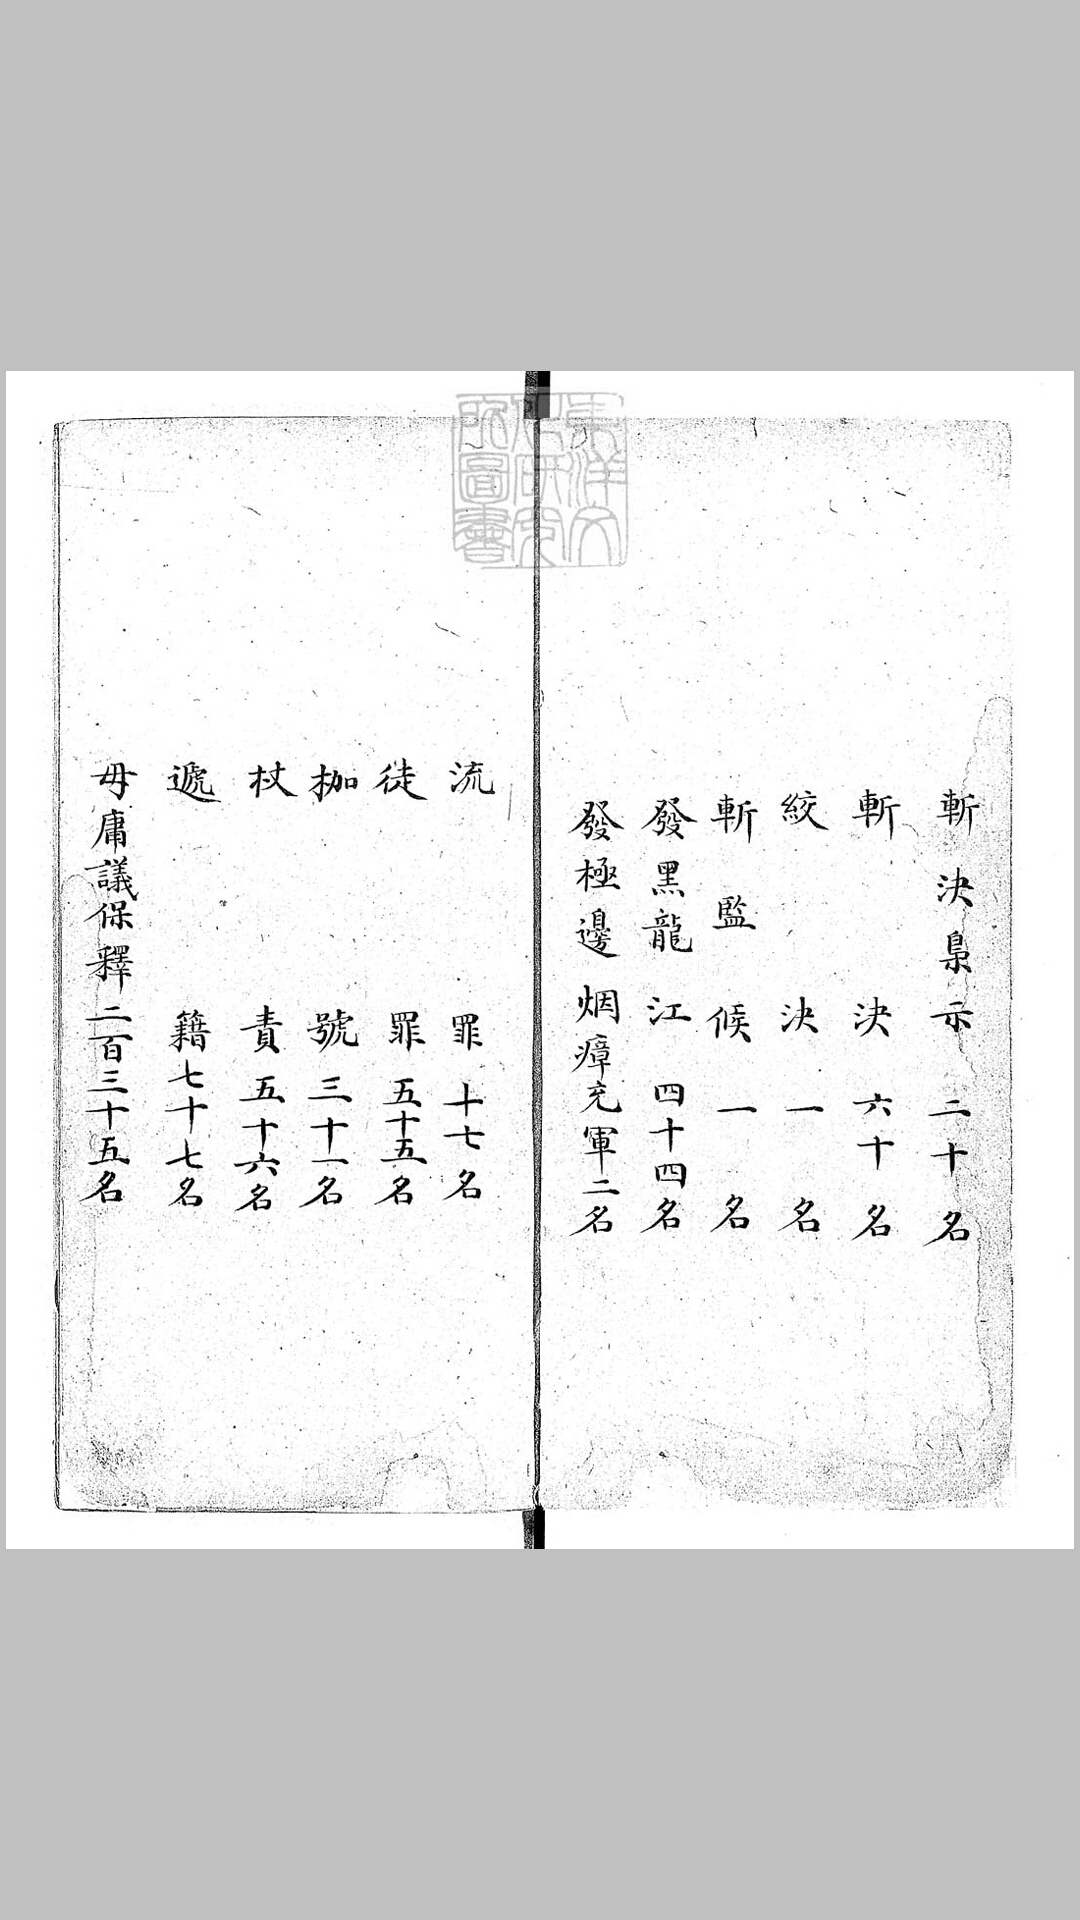 斬決梟示二十名
斬決六十名
絞決一名
斬監候一名
發黑龍江四十四名
發極邊烟瘴充軍二名
流罪十七名
徒罪五十五名
枷號三十一名
杖責五十六名
遞籍七十七名
毋庸議保釋二百三十五名
東洋文
化研究
所圖書